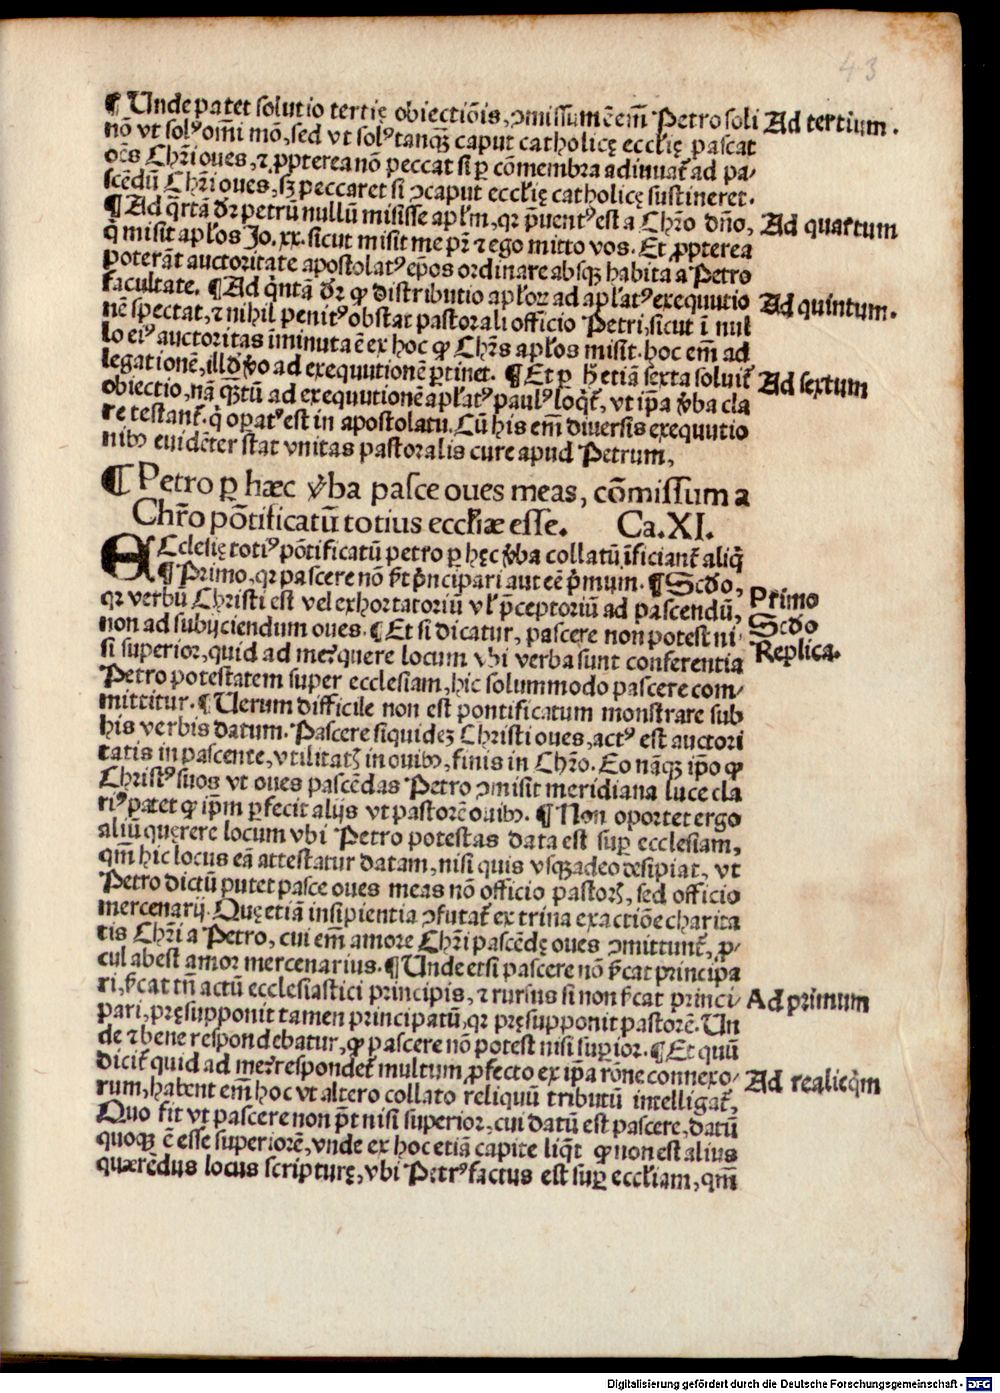 43
¶ Unde patet solutio tertię obiectiõis, ↄmissum ẽ em̃ Petro soli Ad tertium.
nõ vt solꝰ om̃i mõ, sed vt solꝰ tanqȝ caput catholicę eccłię pascat
oẽs Chr̃i oues, ⁊ ꝓpterea nõ peccat si ꝑ cõmembra adiuuat̃ ad pa/
scẽdũ Chr̃i oues, sȝ peccaret si ↄcaput eccłię catholicę sustineret.
¶ Ad q̃rtã dr̃ petrũ nullũ misisse apłm, qꝛ p̃uentꝰ est a Chr̃o dño, Ad quartum
q̃ misit apłos Jo. xx. sicut misit me pr̃ ⁊ ego mitto vos. Et ꝓpterea
poterãt auctoritate apostolatꝰ ep̃os ordinare absqȝ habita a Petro
facultate. ¶ Ad q̃ntã dr̃ ꝙ distributio apłoꝝ ad apłatꝰ exequutio Ad quintum.
nẽ spectat, ⁊ nihil penitꝰ obstat pastorali officio Petri, sicut ĩ nul
lo eiꝰ auctoritas ĩminuta ẽ ex hoc ꝙ Chr̃s apłos misit. hoc em̃ ad
legationẽ, illð ṽo ad exequutionẽ ꝑtinet. ¶ Et ꝑ h̃ etiã sexta soluit̃ Ad sextum
obiectio, nã qȝtũ ad exequutionẽ apłatꝰ paulꝰ loq̃t̃, vt ip̃a ṽba cla
re testant̃. q̃ oꝑatꝰ est in apostolatu. Cũ his em̃ diuersis exequutio
nibꝫ euidẽter stat vnitas pastoralis cure apud Petrum,
¶ Petro ꝑ hæc ṽba pasce oues meas, cõmissum a
Chr̃o põtificatũ totius eccłiæ esse. Ca. XI.
ECclesię totiꝰ põtificatũ petro ꝑ hęc ṽba collatũ ĩficiant̃ aliq̃
¶ Primo, qꝛ pascere nõ ẽt p̃ncipari aut eẽ p̃mum. ¶ Scðo, Primo
qꝛ verbũ Christi est vel exhortatoriũ vł p̃ceptoriũ ad pascendũ, Scðo
non ad subijciendum oues. ¶ Et si dicatur, pascere non potest ni- Replica.
si superior, quid ad me? quere locum vbi verba sunt conferentia
Petro potestatem super ecclesiam, hic solummodo pascere com/
mittitur. ¶ Uerum difficile non est pontificatum monstrare sub
his verbis datum. Pascere siquideȝ Christi oues, actꝰ est auctori
tatis in pascente, vtilitatꝭ in ouibꝫ, finis in Chr̃o. Eo nãqȝ ip̃o ꝙ
Christꝰ suos vt oues pascẽdas Petro ↄmisit meridiana luce cla
riꝰ patet ꝙ ip̃m ꝑfecit alijs vt pastorẽ ouibꝫ. ¶ Non oportet ergo
aliũ quęrere locum vbi Petro potestas data est suꝑ ecclesiam,
qm̃ hic locus eã attestatur datam, nisi quis vsqȝadeo desipiat, vt
Petro dictũ putet pasce oues meas nõ officio pastorꝭ, sed officio
mercenarij. Quę etiã insipientia ↄfutat̃ ex trina exactiõe charita
tis Chr̃i a Petro, cui em̃ amore Chr̃i pascẽdę oues ↄmittunt̃, ꝓ-
cul abest amor mercenarius. ¶ Unde etsi pascere nõ s̃cat principa
ri, s̃cat tñ actũ ecclesiastici principis, ⁊ rursus si non s̃cat princi- Ad primum
pari, pręsupponit tamen principatũ, qꝛ pręsupponit pastorẽ. Un
de ⁊ bene respondebatur, ꝙ pascere nõ potest nisi suꝑior. ¶ Et quũ
dicit̃ quid ad me? respondet̃ multum ꝓfecto ex ip̃a rõne connexo/ Ad realiqm̃
rum, habent em̃ hoc vt altero collato reliquũ tributũ intelligat̃,
Quo fit vt pascere non p̃t nisi superior, cui datũ est pascere, datũ
quoqȝ ẽ esse superiorẽ, vnde ex hoc etiã capite liq̃t ꝙ non est alius
quærẽdus locus scripturę, vbi Petrꝰ factus est suꝑ eccłiam, qm̃
Digitalisierung gefördert durch die Deutsche Forschungsgemeinschaft - DFG